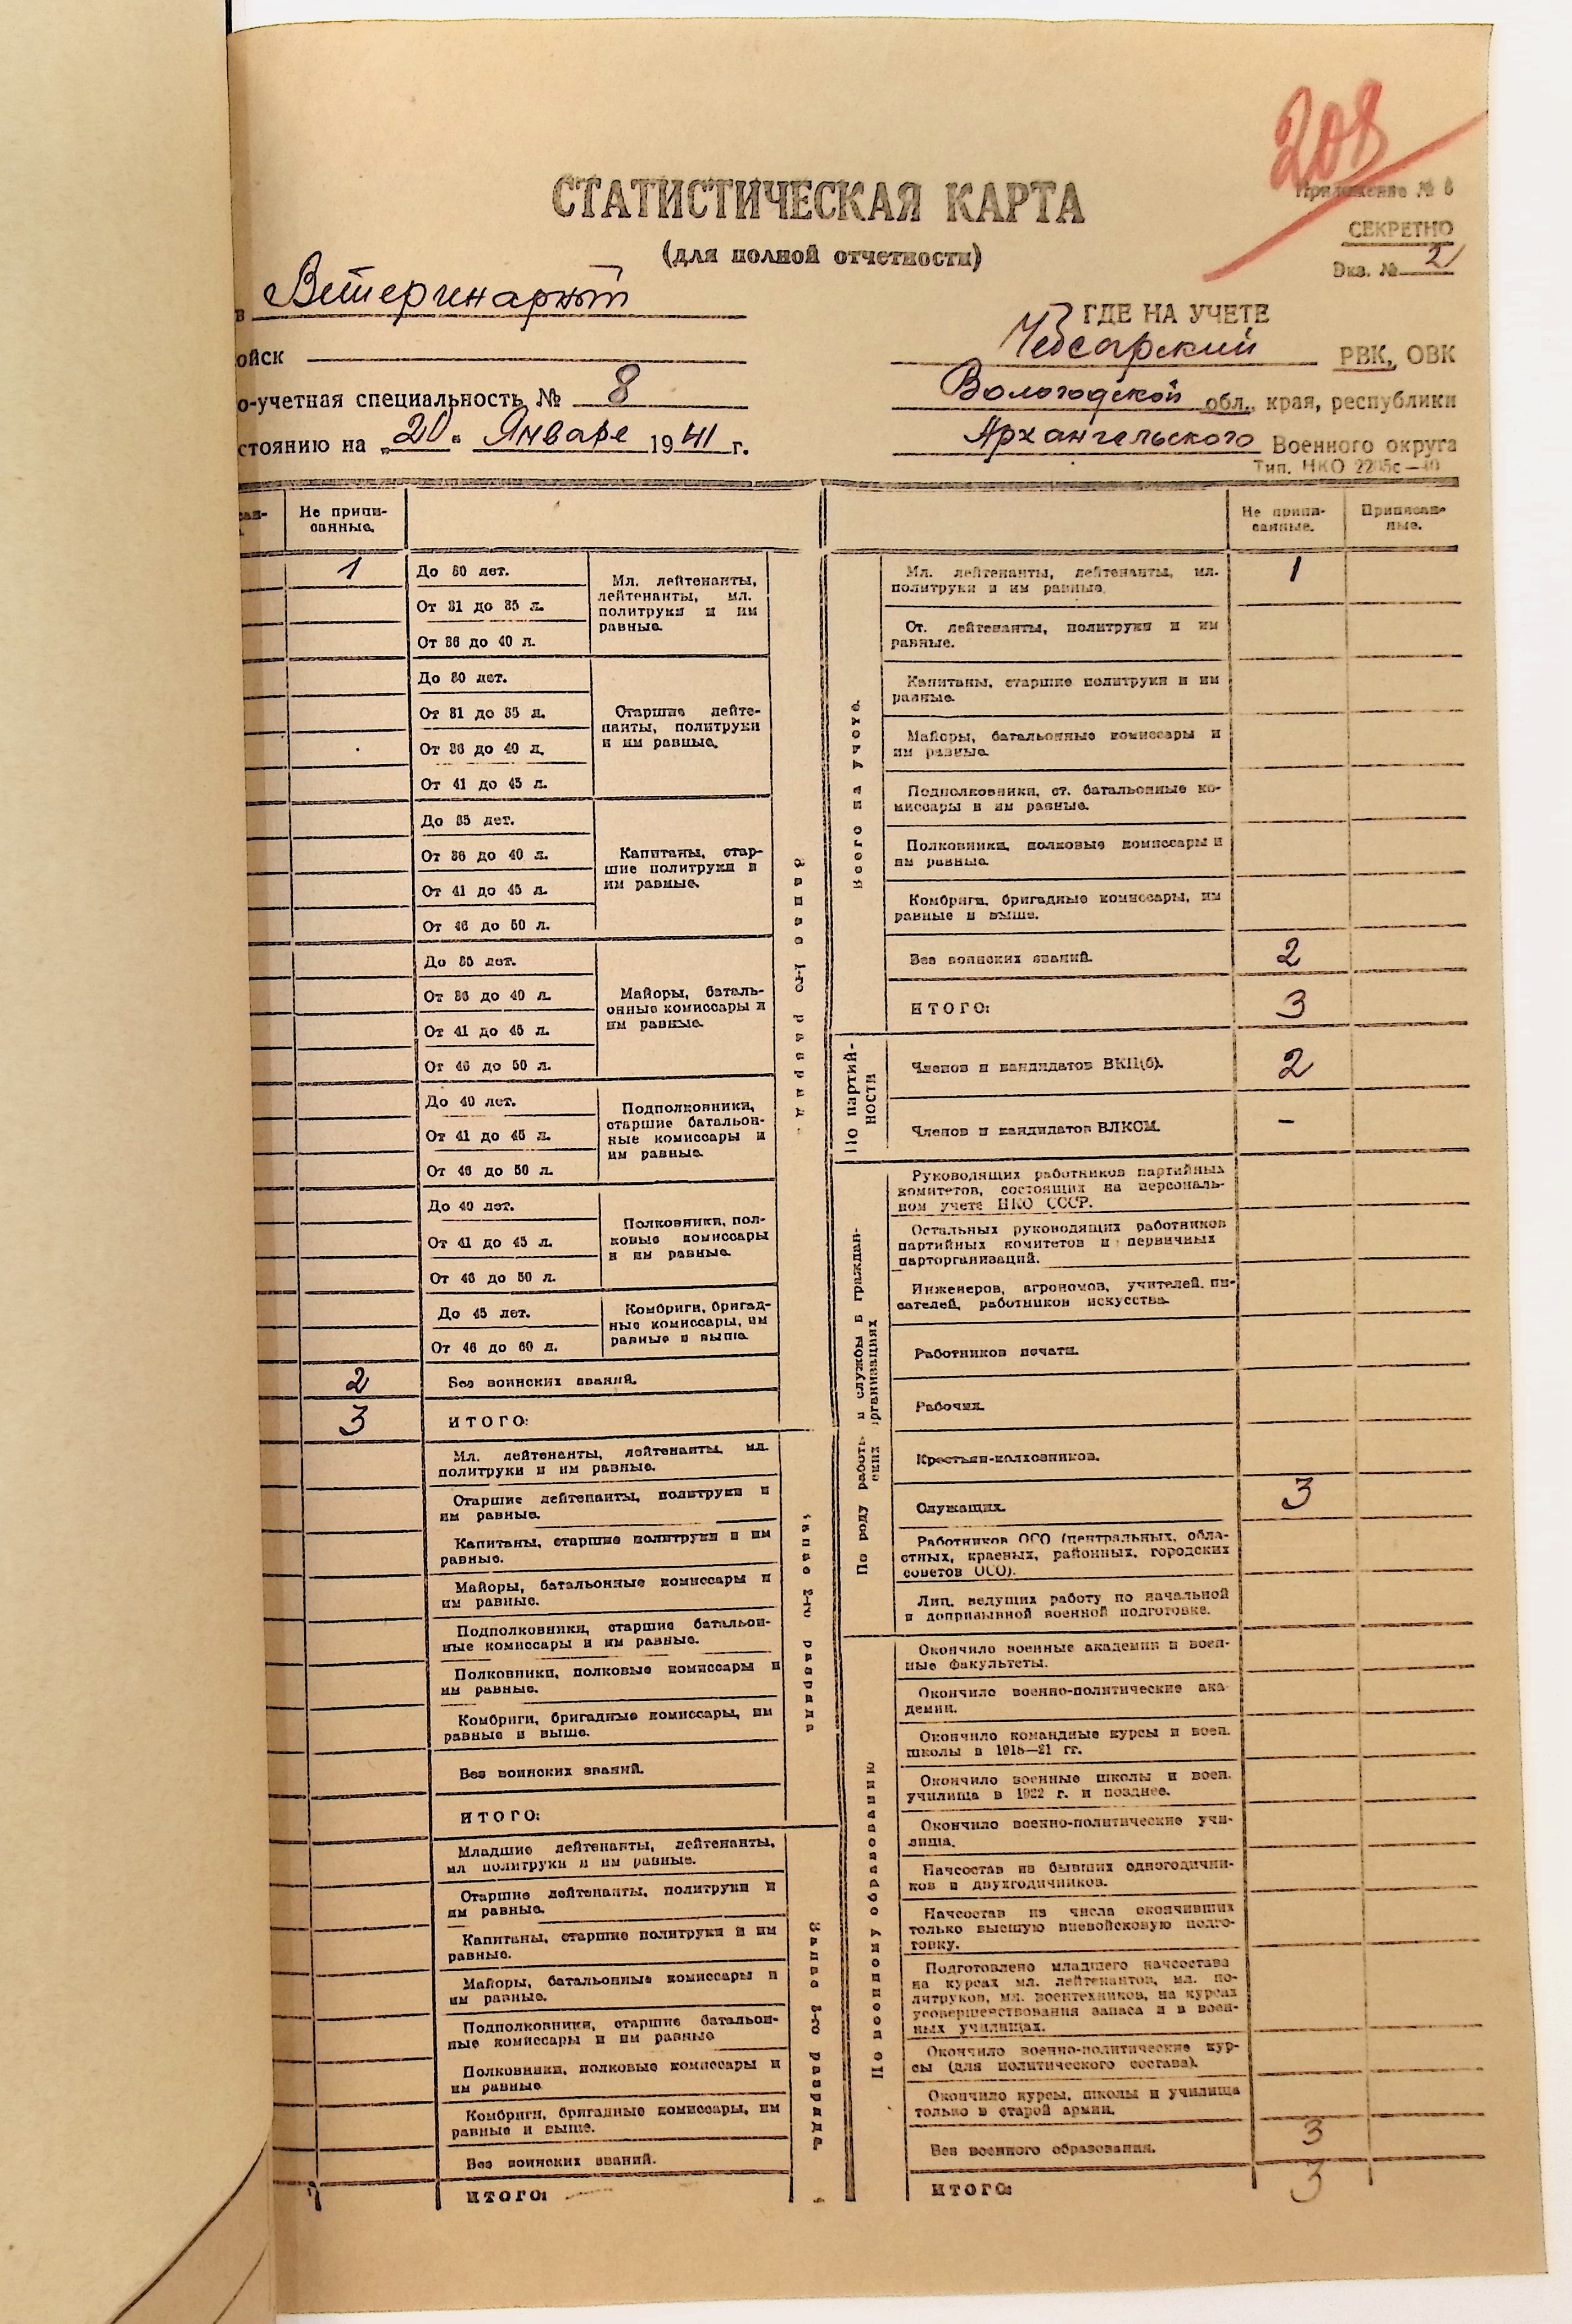 208
Приложение № 6
СЕКРЕТНО
Экз. № 2
СТАТИСТИЧЕСКАЯ КАРТА
(для полной отчетности)
в Ветеринарный
ойск
о-учетная специальность № 8
стоянию на „20“ Января 1941 г.
ГДЕ НА УЧЕТЕ
Чебсарский РВК, ОВК
Вологодской обл., края, республики
Архангельского Военного округа
Тип. НКО
Не припи-
санные.
1
До 30 лет.
От 31 до 35 л.
От 36 до 40 л.
Мл. лейтенанты,
лейтенанты, мл.
политруки и им
равные.
До 30 лет.
От 31 до 35 л.
От 36 до 40 л.
От 41 до 45 л.
Старшие лейте-
нанты, политруки
и им равные.
До 35 лет.
От 36 до 40 л.
От 41 до 45 л.
От 46 до 50 л.
Капитаны, стар-
шие политруки и
им равные.
До 35 лет.
От 36 до 40 л.
От 41 до 45 л.
От 46 до 50 л.
Майоры, баталь-
онные комиссары и
им равные.
До 40 лет.
От 41 до 45 л.
От 46 до 50 л.
Подполковники,
старшие батальон-
ные комиссары и
им равные.
До 40 лет.
От 41 до 45 л.
От 46 до 50 л.
Полковники, пол-
ковые комиссары
и им равные.
До 45 лет.
От 46 до 60 л.
Комбриги, бригад-
ные комиссары, им
равные и выше.
2 Без воинских званий.
3 ИТОГО:
Запас 1-го разряда
Мл. лейтенанты, лейтенанты, мл.
политруки и им равные.
Старшие лейтенанты, политруки и
им равные.
Капитаны, старшие политруки и им
равные.
Майоры, батальонные комиссары и
им равные.
Подполковники, старшие батальон-
ные комиссары и им равные.
Полковники, полковые комиссары и
им равные.
Комбриги, бригадные комиссары, им
равные и выше.
Без воинских званий.
ИТОГО:
Запас 2-го разряда
Младшие лейтенанты, лейтенанты,
мл политруки и им равные.
Старшие лейтенанты, политруки и
им равные.
Капитаны, старшие политруки и им
равные.
Майоры, батальонные комиссары и
им равные.
Подполковники, старшие батальон-
ные комиссары и им равные
Полковники, полковые комиссары и
им равные
Комбриги, бригадные комиссары, им
равные и выше.
Без воинских званий.
ИТОГО:
Запас 3-го разряда.
Не припи-
санные.
Приписан-
ные.
Всего на учете.
Мл. лейтенанты, лейтенанты, мл. 1
политруки и им равные.
Ст. лейтенанты, политруки и им
равные.
Капитаны, старшие политруки и им
равные.
Майоры, батальонные комиссары и
им равные.
Подполковники, ст. батальонные ко-
миссары и им равные.
Полковники, полковые комиссары и
им равные.
Комбриги, бригадные комиссары, им
равные и выше.
Без воинских званий. 2
ИТОГО: 3
По партий-
ности
Членов и кандидатов ВКП(б). 2
Членов и кандидатов ВЛКСМ. -
По роду работы и службы в граждан-
ских организациях
Руководящих работников партийных
комитетов, состоящих на персональ-
ном учете НКО СССР.
Остальных руководящих работников
партийных комитетов и первичных
парторганизаций.
Инженеров, агрономов, учителей, пи-
сателей, работников искусства.
Работников печати.
Рабочих.
Крестьян-колхозников.
Служащих. 3
Работников ОСО (центральных, обла-
стных, краевых, районных, городских
советов ОСО).
Лиц, ведущих работу по начальной
и допризывной военной подготовке.
По военному образованию
Окончило военные академии и воен-
ные факультеты.
Окончило военно-политические ака-
демии.
Окончило командные курсы и воен.
школы в 1918—21 гг.
Окончило военные школы и воен.
училища в 1922 г. и позднее.
Окончило военно-политические учи-
лища.
Начсостав из бывших одногодични-
ков и двухгодичников.
Начсостав из числа окончивших
только высшую вневойсковую подго-
товку.
Подготовлено младшего начсостава
на курсах мл. лейтенантов, мл. по-
литруков, мл. воентехников, на курсах
усовершенствования запаса и в воен-
ных училищах.
Окончило военно-политические кур-
сы (для политического состава).
Окончило курсы, школы и училища
только в старой армии.
Без военного образования. 3
ИТОГО: 3